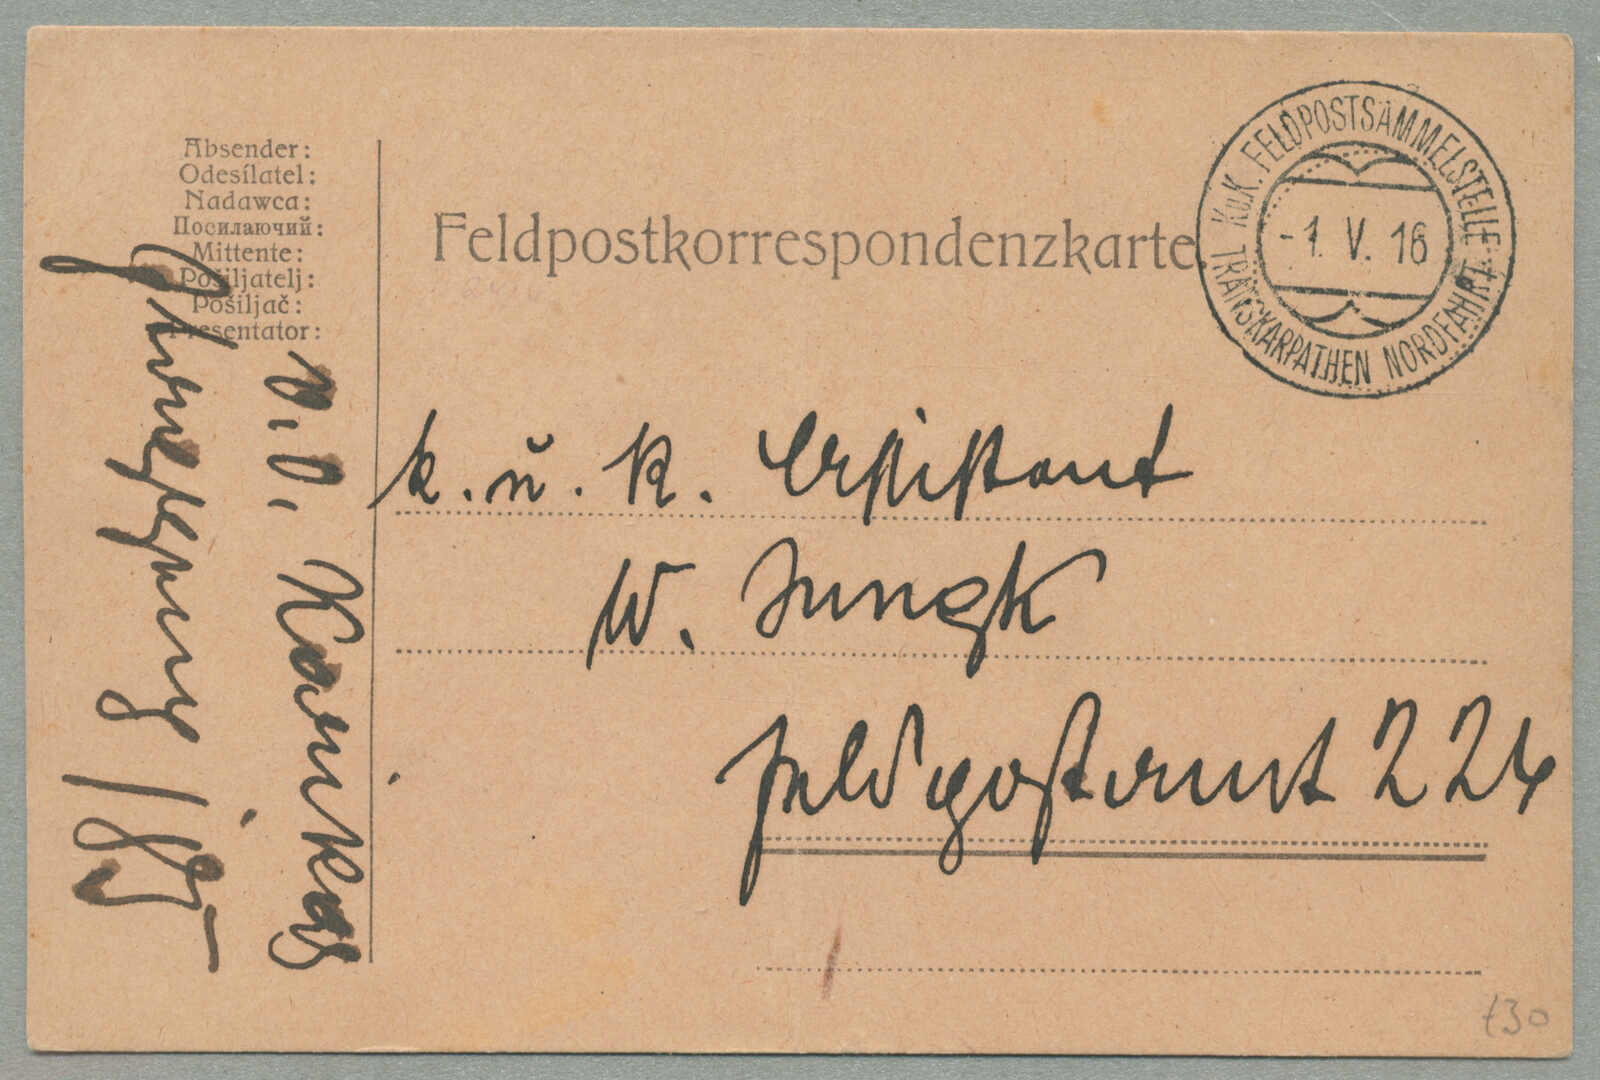 Absender:
Odesílatel:
Nadawca:
Посилаючий:
Mittente:
Pošiljatelj:
Pošiljač:
Presentator:
Feldpostkorrespondenzkarte.
K.u.K. FELDPOSTSAMMELSTELLE
TRANSKARPATHEN NORDFAHRT
-1. V. 16
k. u. k. Assistant
W. Jungk
Feldpostamt 226
130